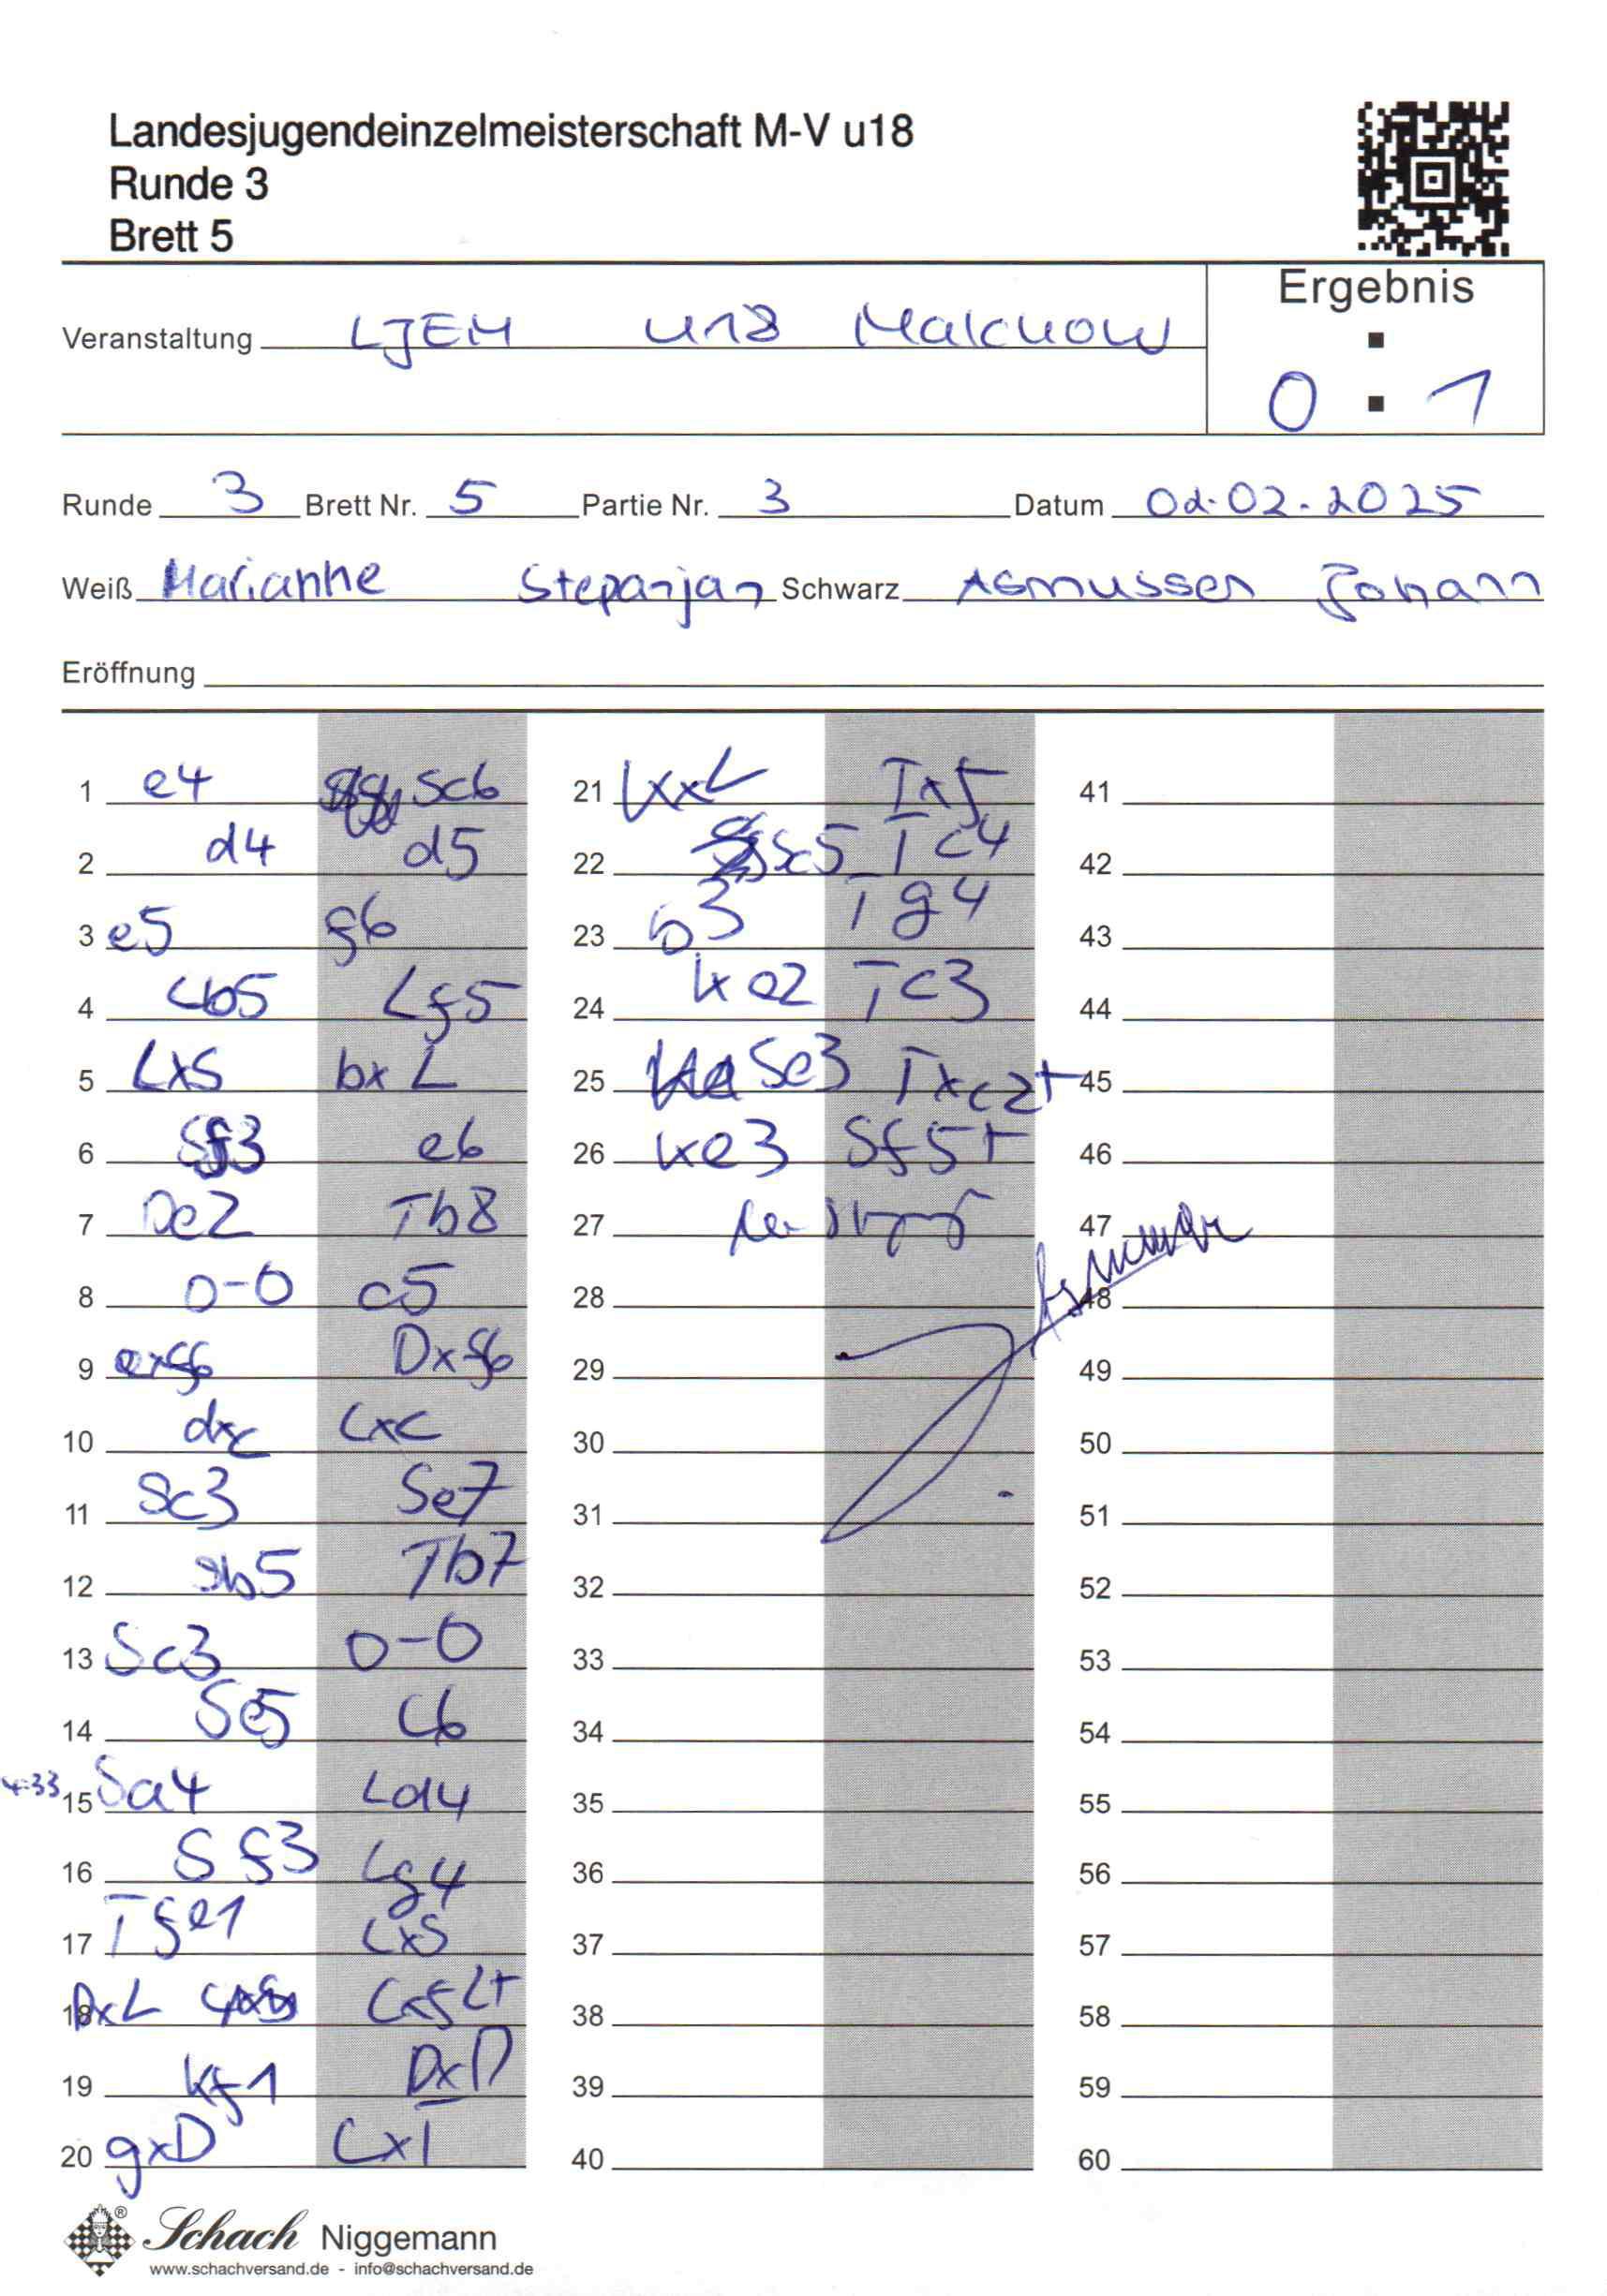 Landesjugendeinzelmeisterschaft M-V u18
Runde 3
Brett 5
Ergebnis
Veranstaltung LJEM u18 Malchow
0 : 1
Runde 3 Brett Nr. 5 Partie Nr. 3 Datum 02.02.2025
Weiß Marianne Stepanjan Schwarz Asmussen Johann
Eröffnung
1 e4 Sc6
2 d4 d5
3 e5 f6
4 Lb5 Lf5
5 LxS bxL
6 Sf3 e6
7 De2 Tb8
8 0-0 c5
9 exf6 Dxf6
10 dxc Lxc
11 Sc3 Se7
12 Sb5 Tb7
13 Sc3 0-0
14 Se5 c6
4:33 15 Sa4 Ld4
16 Sf3 Lg4
17 Tfe1 LxS
18 DxL Lxf2+
19 Kf1 DxD
20 gxD LxT
21 KxL Txf
22 Sc5 Tc4
23 b3 Tg4
24 Ke2 Tc3
25 Se3 Txc2+
26 Ke3 Sf5+
27
28
29
30
31
32
33
34
35
36
37
38
39
40
41
42
43
44
45
46
47
48
49
50
51
52
53
54
55
56
57
58
59
60
Schach Niggemann
www.schachversand.de - info@schachversand.de